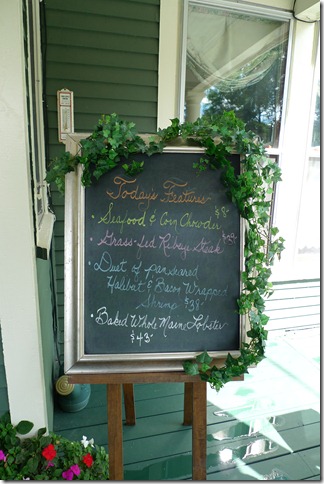 Today's Features
• Seafood & Corn Chowder $8-
• Grass-fed Ribeye Steak
• Duet of pan seared
Halibut & Bacon Wrapped
Shrimp $38-
• Baked Whole Maine Lobster
$43-